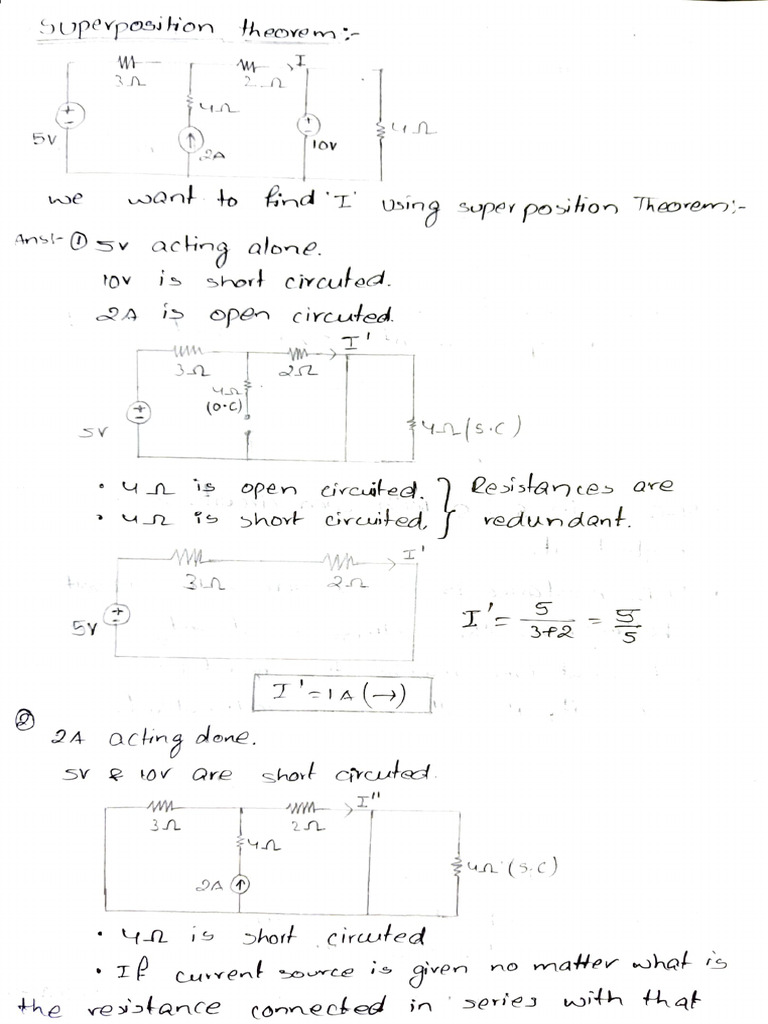 Superposition theorem:-
3Ω 2Ω I
4Ω
5V 2A 10V 4Ω
we want to find 'I' using superposition Theorem:-
Ans:- ① 5V acting alone.
10V is short circuted.
2A is open circuted.
I'
3Ω 2Ω
4Ω
(O.C)
5V 4Ω(S.C)
• 4Ω is open circuited. } Resistances are
• 4Ω is short circuited, } redundant.
I'
3Ω 2Ω
5V
I' = 5/3+2 = 5/5
I' = 1A (→)
②
2A acting alone.
5V & 10V are short circuted.
I"
3Ω 2Ω
4Ω
2A 4Ω (S.C)
• 4Ω is short circuted
• If current source is given no matter what is
the resistance connected in series with that